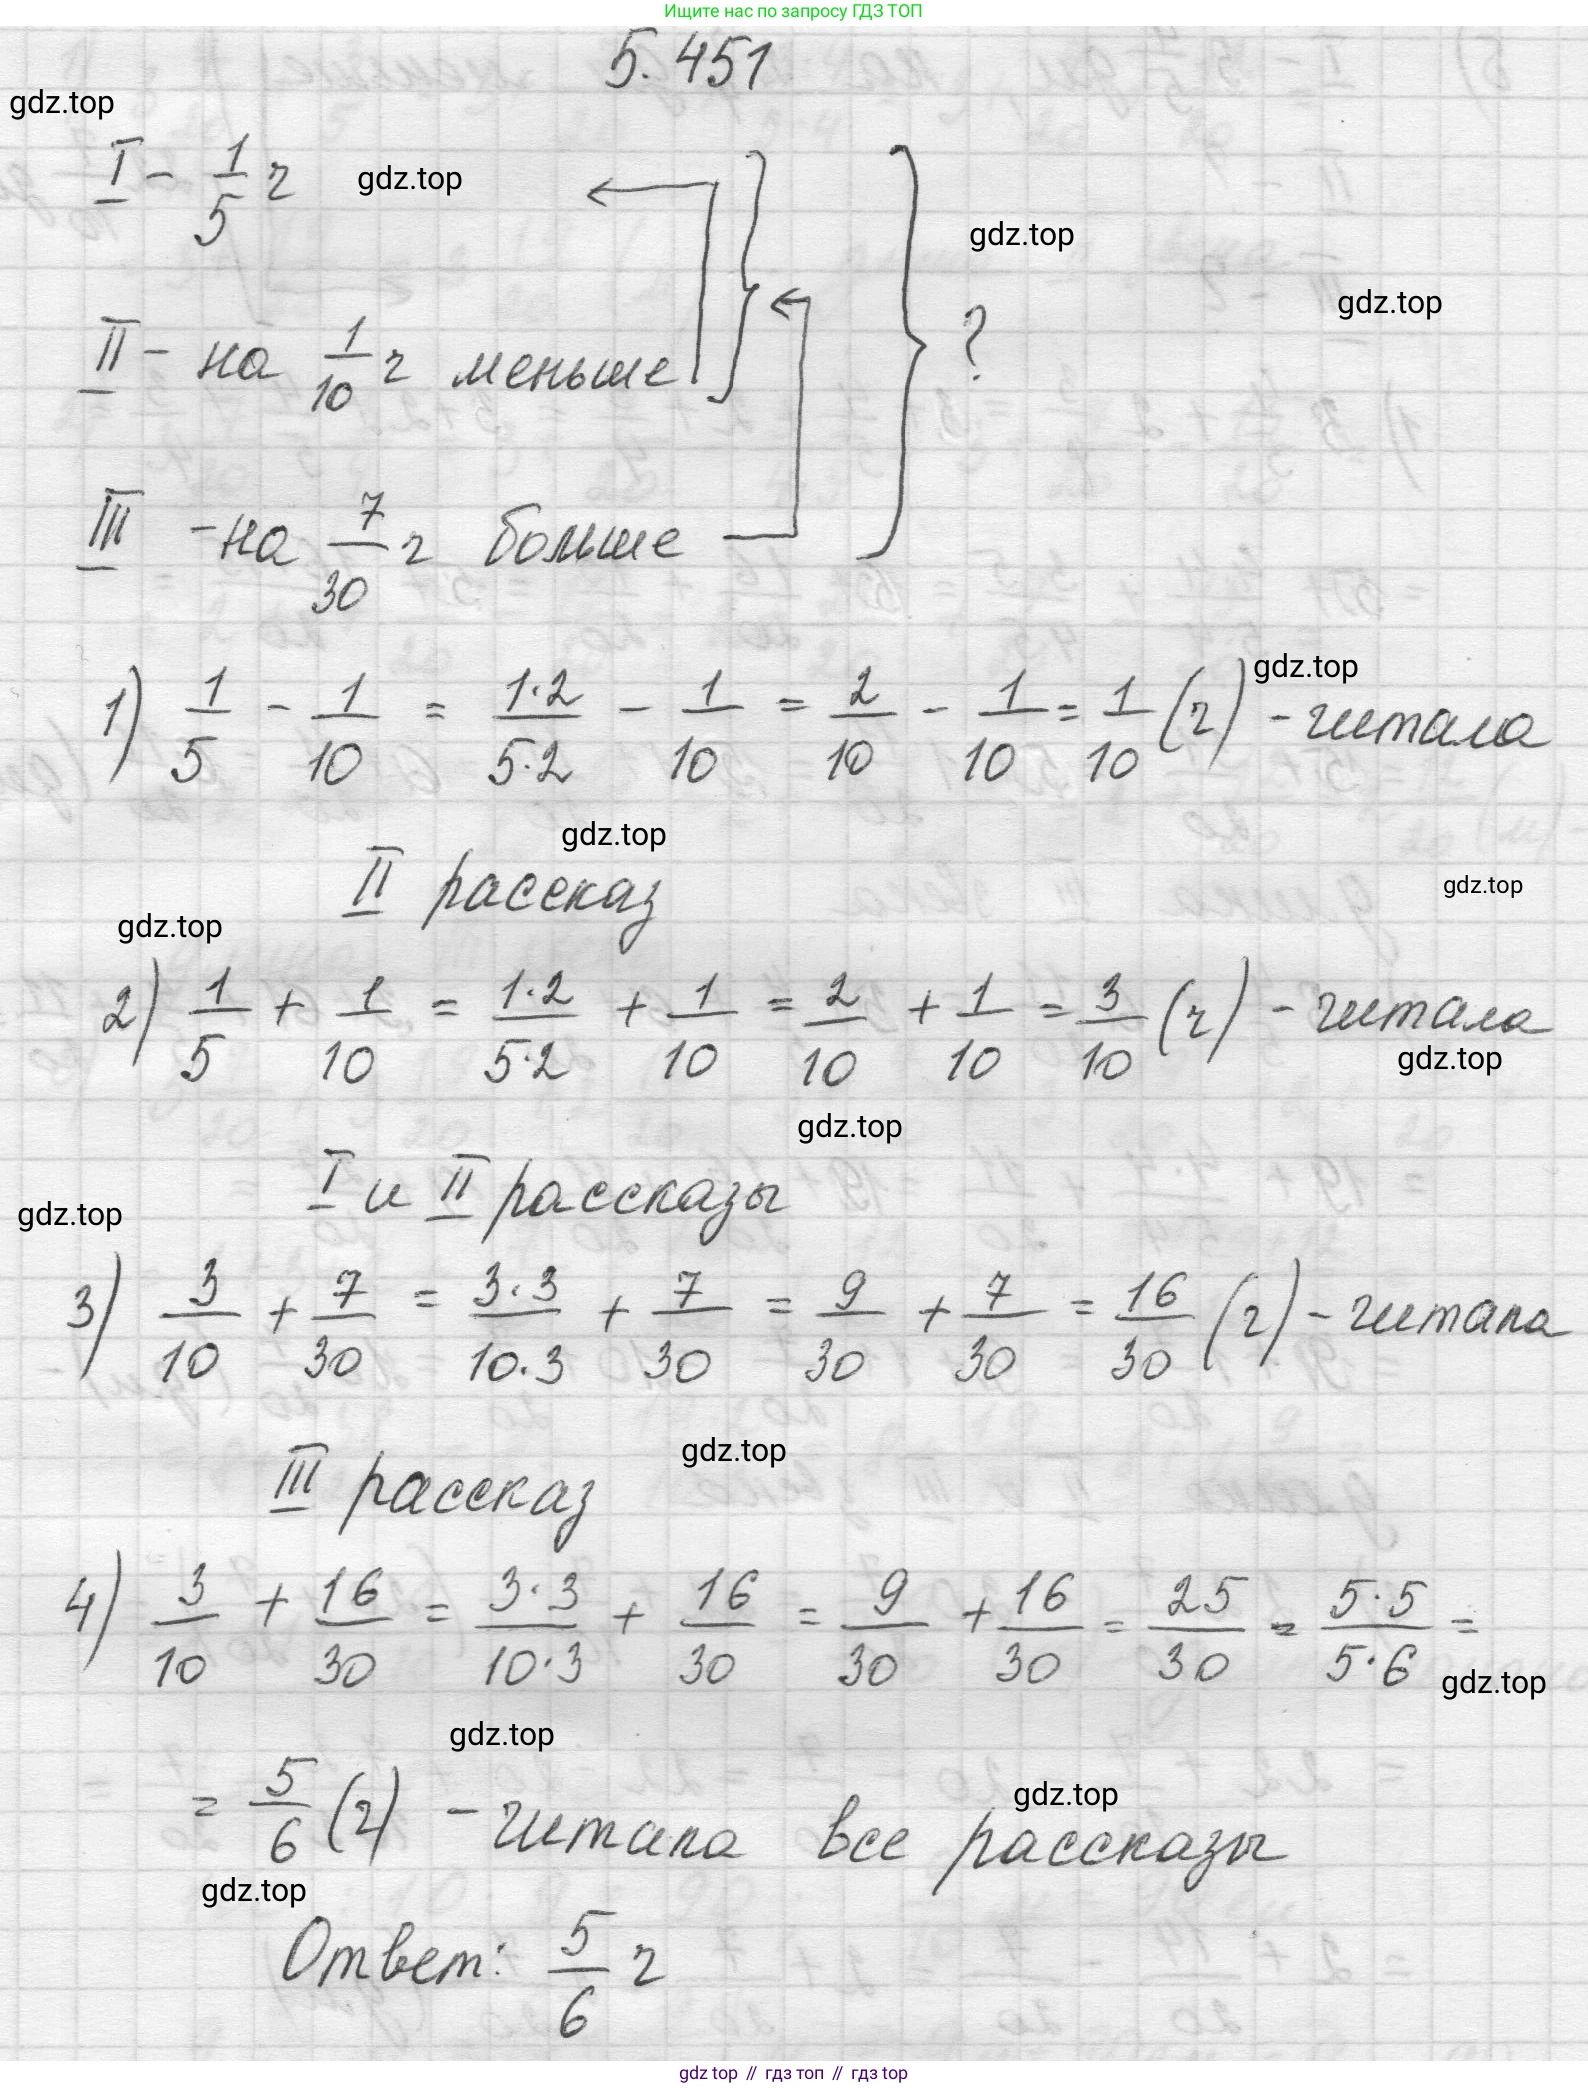 Ищите нас по запросу ГДЗ ТОП
5.451
gdz.top
I - 1/5 ч
gdz.top
gdz.top
gdz.top
II - на 1/10 ч меньше
?
III - на 7/30 ч больше
gdz.top
1) 1/5 - 1/10 = 1·2/5·2 - 1/10 = 2/10 - 1/10 = 1/10 (ч) - читала
gdz.top
II рассказ
gdz.top
gdz.top
2) 1/5 + 1/10 = 1·2/5·2 + 1/10 = 2/10 + 1/10 = 3/10 (ч) - читала
gdz.top
gdz.top
I и II рассказы
gdz.top
3) 3/10 + 7/30 = 3·3/10·3 + 7/30 = 9/30 + 7/30 = 16/30 (ч) - читала
gdz.top
III рассказ
4) 3/10 + 16/30 = 3·3/10·3 + 16/30 = 9/30 + 16/30 = 25/30 = 5·5/5·6 =
gdz.top
gdz.top
gdz.top
= 5/6 (ч) - читала все рассказы
gdz.top
Ответ: 5/6 ч
gdz top // гдз топ // гдз top